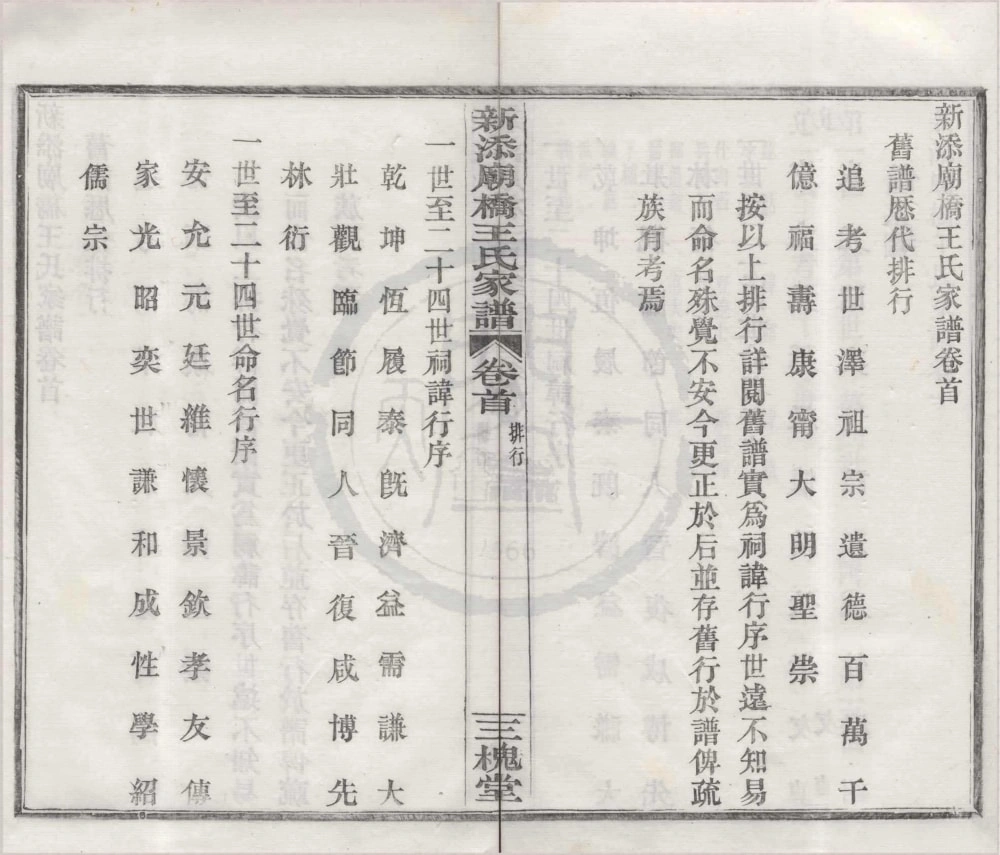 新添廟橋王氏家譜卷首
舊譜歷代排行
追考世澤祖宗遺德百萬千
億福壽康甯大明聖崇
按以上排行詳閱舊譜實爲祠諱行序世遠不知易
而命名殊覺不安今更正於后並存舊行於譜俾疏
族有考焉
新添廟橋王氏家譜 卷首 排行 三槐堂
一世至二十四世祠諱行序
乾坤恆履泰既濟益需謙大
壯觀臨節同人晉復咸博先
林衍
一世至二十四世命名行序
安允元廷維懷景欽孝友傳
家光昭奕世謙和成性學紹
儒宗